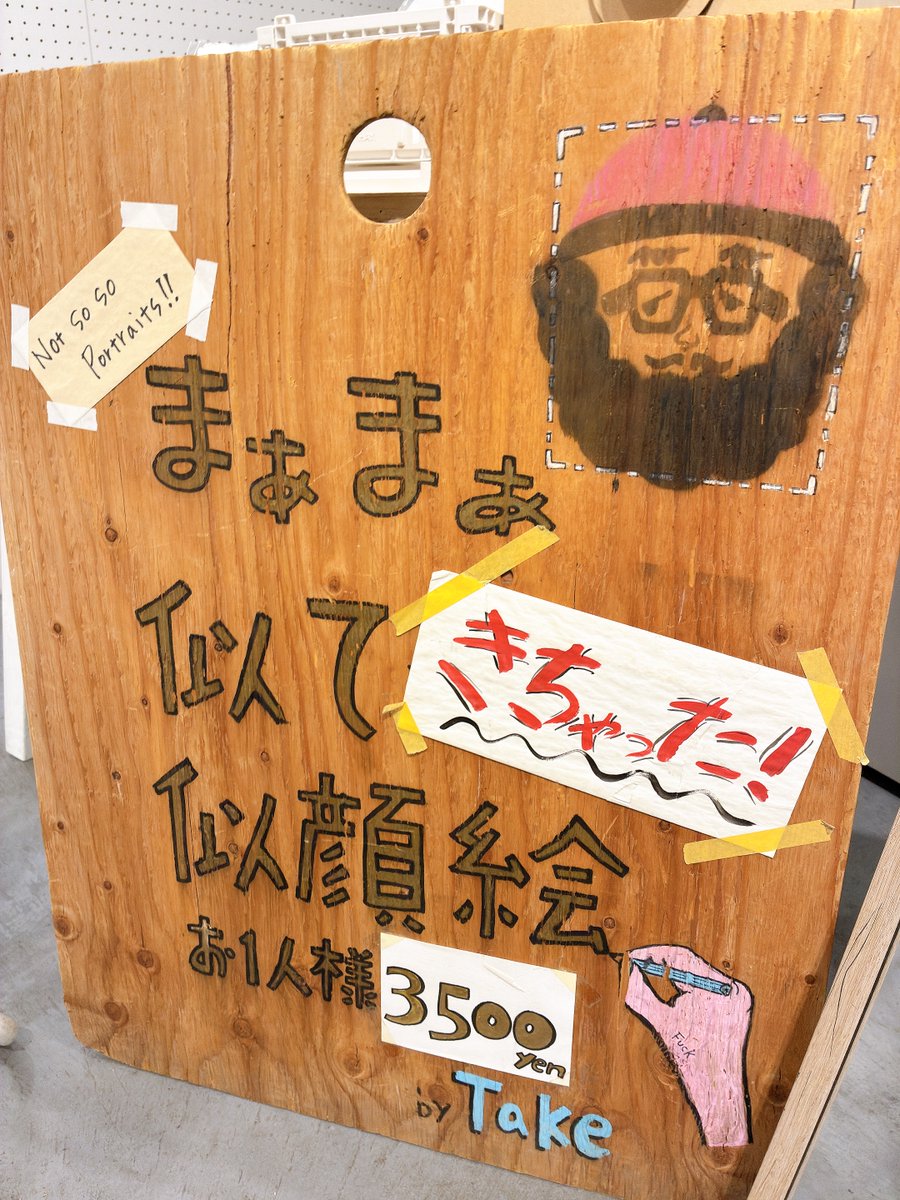 Not so so
Portraits!!
まぁまぁ
似てきちゃった!
似顔絵
お1人様 3500
yen
by Take
Fuck